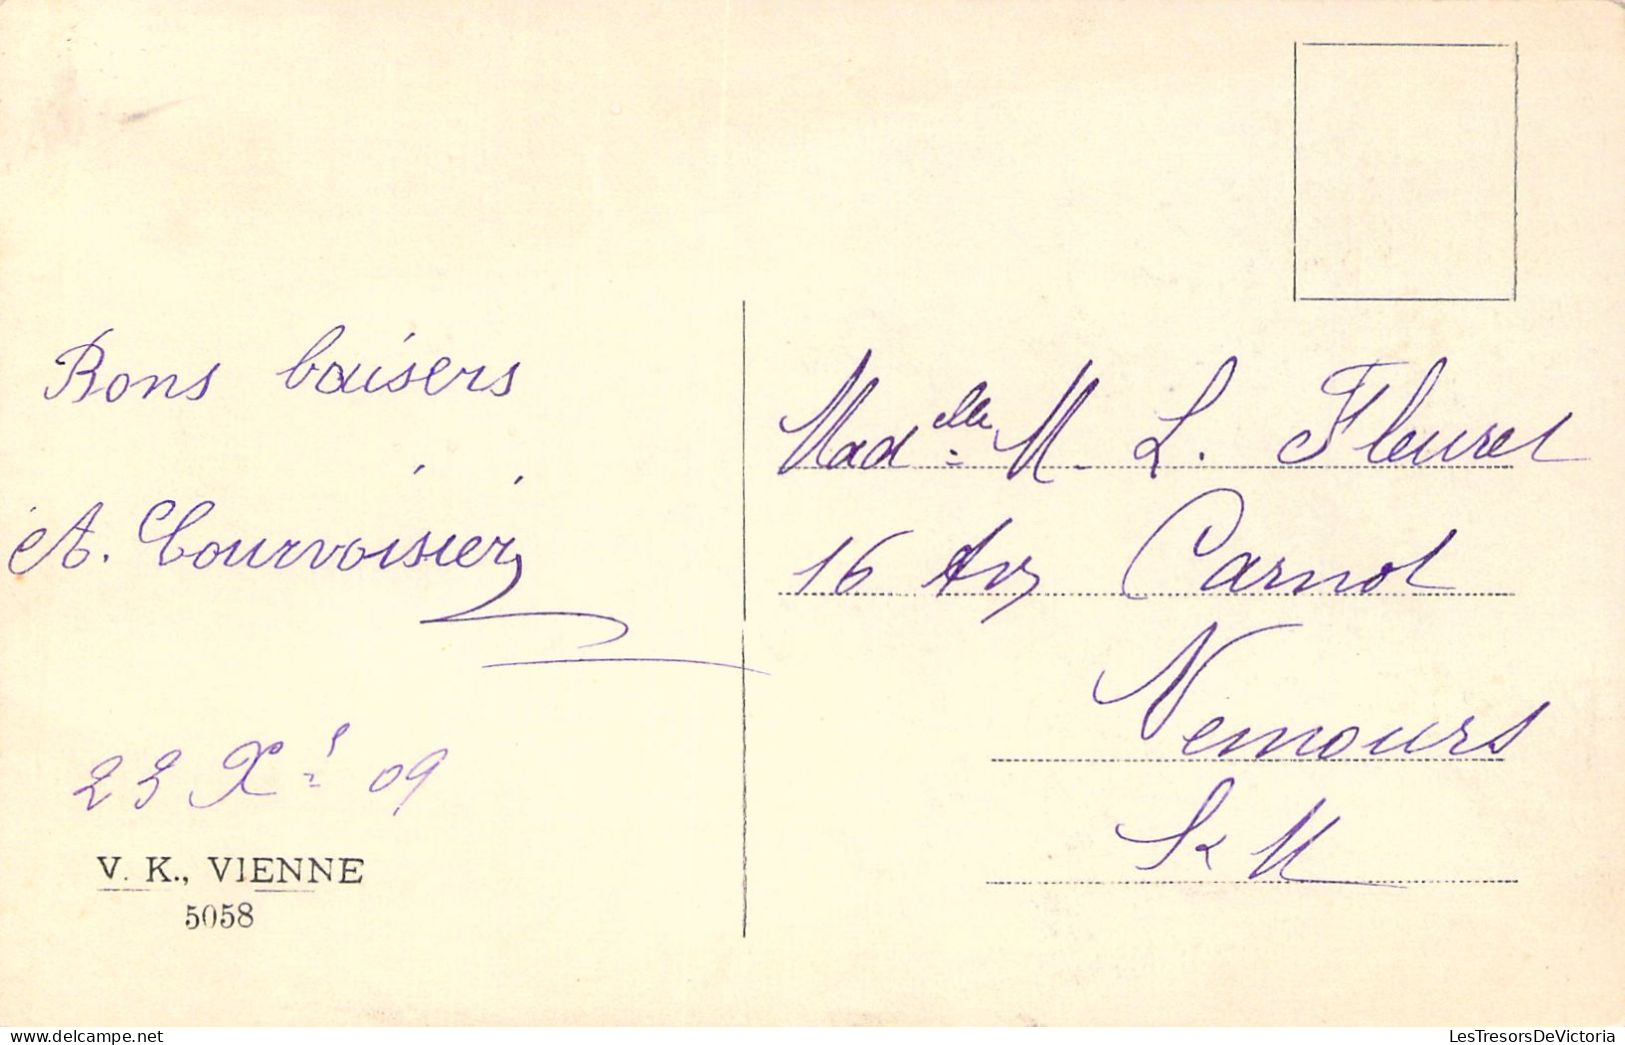 Bons baisers
A. Courvoisier
23 Xᵇ 09
V. K., VIENNE
5058
Madelle M. L. Fleuret
16 Av Carnot
Nemours
S & M
delcampe.net
LesTresorsDeVictoria